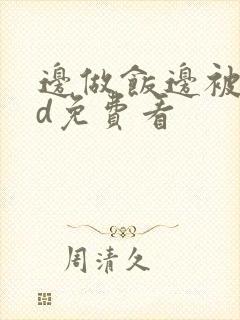 邊做飯邊被
d免費看
周清久